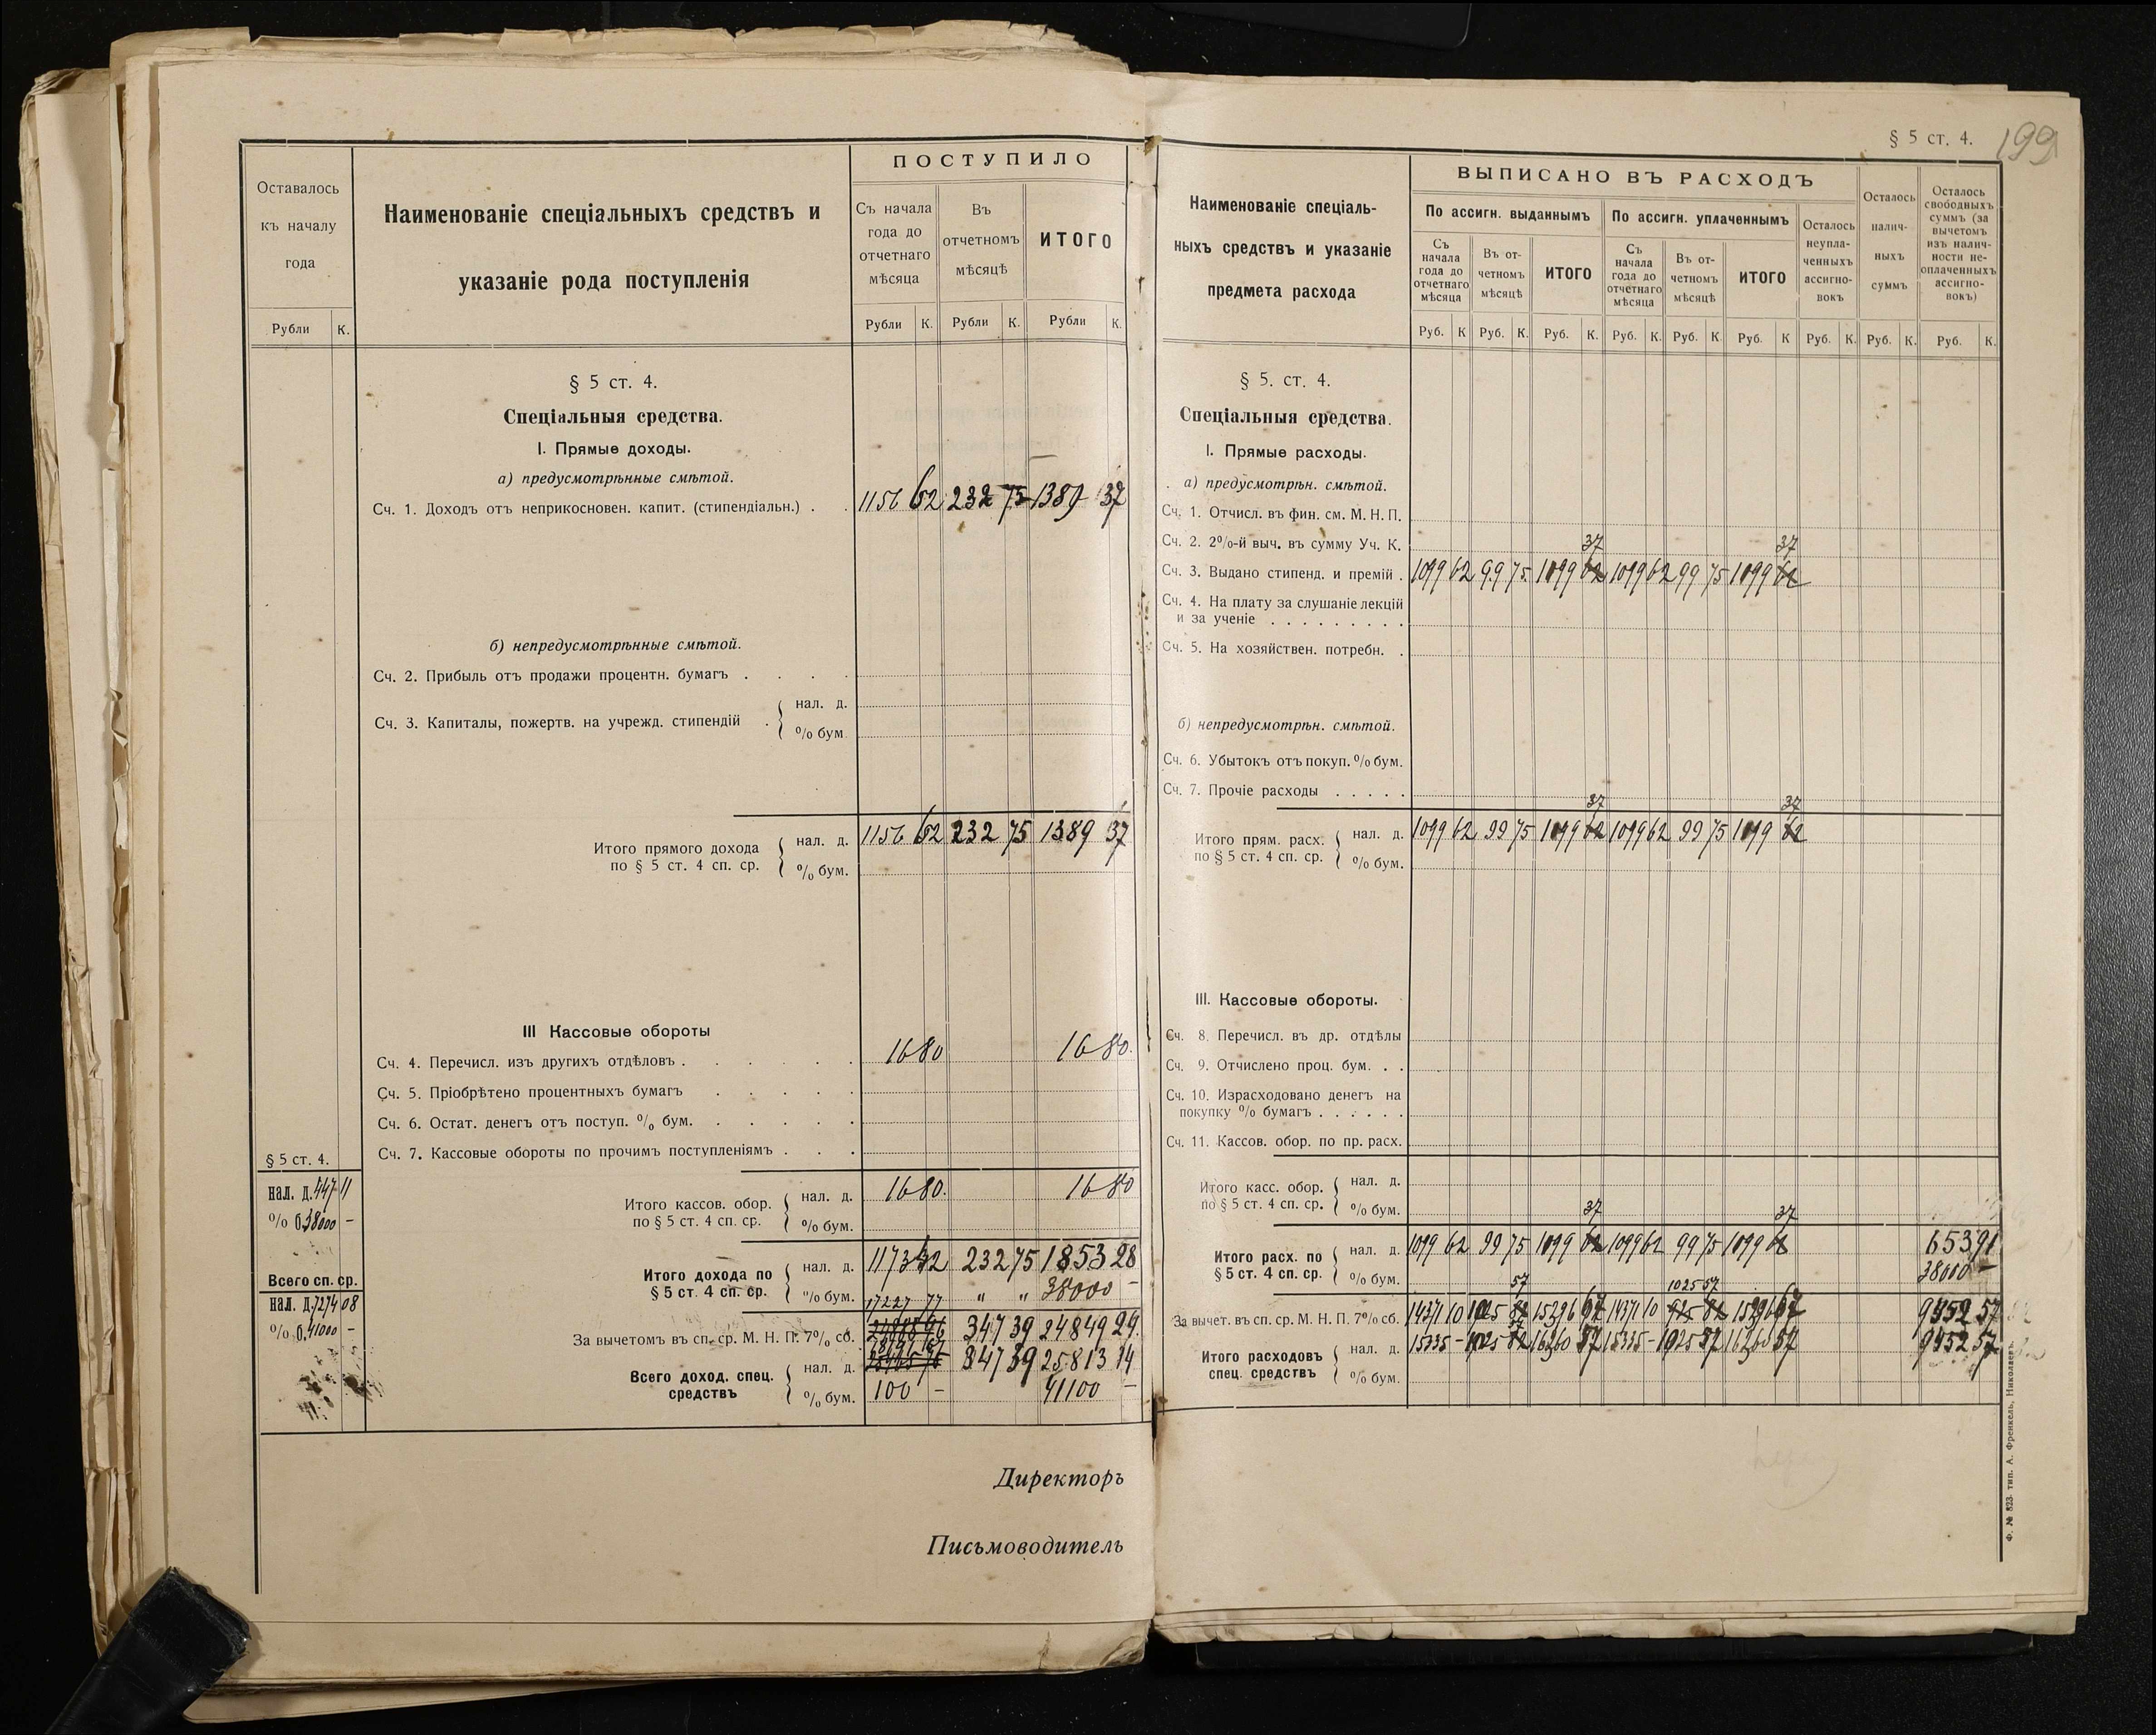 § 5 ст. 4.
199
Оставалось
къ началу
года
Рубли К.
Наименованіе спеціальныхъ средствъ и
указаніе рода поступленія
ПОСТУПИЛО
Съ начала
года до
отчетнаго
мѣсяца
Въ
отчетномъ
мѣсяцѣ
ИТОГО
Рубли К. Рубли К. Рубли К.
§ 5 ст. 4.
Спеціальныя средства.
I. Прямые доходы.
а) предусмотрѣнные смѣтой.
Сч. 1. Доходъ отъ неприкосновен. капит. (стипендіальн.) . . 1156 62 232 75 1389 37
б) непредусмотрѣнные смѣтой.
Сч. 2. Прибыль отъ продажи процентн. бумагъ . . . .
Сч. 3. Капиталы, пожертв. на учрежд. стипендій .
нал. д.
% бум
Итого прямого дохода
по § 5 ст. 4 сп. ср.
нал. д. 1156 62 232 75 1389 37
% бум.
III Кассовые обороты
Сч. 4. Перечисл. изъ другихъ отдѣловъ . . . . . . 1680 1680.
Сч. 5. Пріобрѣтено процентныхъ бумагъ . . . . .
Сч. 6. Остат. денегъ отъ поступ. % бум. . . . . .
Сч. 7. Кассовые обороты по прочимъ поступленіямъ . . .
§ 5 ст. 4.
нал. д. 447 11
% б. 38000 –
Всего сп. ср.
нал. д. 7274 08
% б. 41000 –
Итого кассов. обор.
по § 5 ст. 4 сп. ср.
нал. д. 1680. 1680
% бум.
Итого дохода по
§ 5 ст. 4 сп. ср.
нал. д. 1173 42 232 75 1853 28
% бум. " " 38000 –
17227 77
За вычетомъ въ сп. ср. М. Н. П. 7% сб. 347 39 24849 24.
Всего доход. спец.
средствъ
нал. д. 847 39 25813 14
% бум. 100 – 41100 –
Директоръ
Письмоводитель
Наименованіе спеціаль-
ныхъ средствъ и указаніе
предмета расхода
ВЫПИСАНО ВЪ РАСХОДЪ
По ассигн. выданнымъ
По ассигн. уплаченнымъ
Съ
начала
года до
отчетнаго
мѣсяца
Въ от-
четномъ
мѣсяцѣ
ИТОГО
Съ
начала
года до
отчетнаго
мѣсяца
Въ от-
четномъ
мѣсяцѣ
ИТОГО
Осталось
неупла-
ченныхъ
ассигно-
вокъ
Осталось
налич-
ныхъ
суммъ
Осталось
свободныхъ
суммъ (за
вычетомъ
изъ налич-
ности не-
оплаченныхъ
ассигно-
вокъ)
Руб. К Руб. К. Руб. К. Руб. К. Руб. К. Руб. К Руб. К. Руб. К. Руб. К.
§ 5. ст. 4.
Спеціальныя средства.
I. Прямые расходы.
а) предусмотрѣн. смѣтой.
Сч. 1. Отчисл. въ фин. см. М. Н. П.
Сч. 2. 2%-й выч. въ сумму Уч. К.
37 37
Сч. 3. Выдано стипенд. и премій . 1099 62 99 75 1099 62 1099 62 99 75 1099 62
Сч. 4. На плату за слушаніе лекцій
и за ученіе . . . . . . . . .
Сч. 5. На хозяйствен. потребн. .
б) непредусмотрѣн. смѣтой.
Сч. 6. Убытокъ отъ покуп. % бум.
Сч. 7. Прочіе расходы . . . . .
37 37
Итого прям. расх.
по § 5 ст. 4 сп. ср.
нал. д. 1099 62 99 75 1099 62 1099 62 99 75 1099 62
% бум.
III. Кассовые обороты.
Сч. 8. Перечисл. въ др. отдѣлы
Сч. 9. Отчислено проц. бум. . .
Сч. 10. Израсходовано денегъ на
покупку % бумагъ . . . . . .
Сч. 11. Кассов. обор. по пр. расх.
Итого касс. обор.
по § 5 ст. 4 сп. ср.
нал. д.
% бум.
37 37
Итого расх. по
§ 5 ст. 4 сп. ср.
нал. д. 1099 62 99 75 1099 62 1099 62 99 75 1099 62 653 91
% бум. 38000 –
57 1025 57
За вычет. въ сп. ср. М. Н. П. 7% сб. 14371 10 1025 82 15296 67 14371 10 925 82 15296 67 9352 57
Итого расходовъ
спец. средствъ
нал. д. 15335 – 1025 82 16260 57 15335 – 1025 57 16260 57 9452 57
% бум.
Ф. № 823. тип. А. Френкель, Николаевъ.